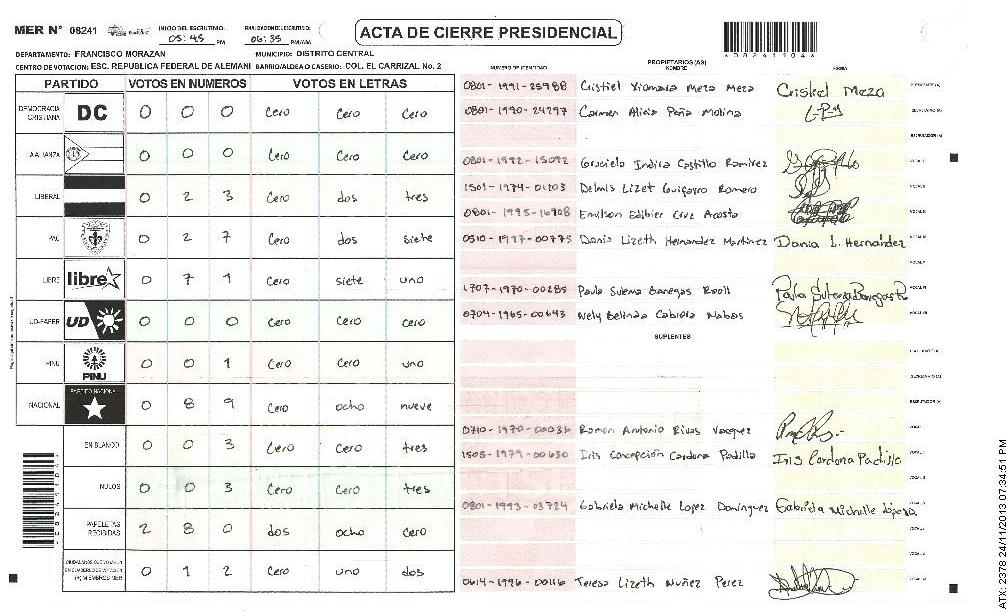 MER N° 08241 INICIO DEL ESCRUTINIO: 05:45 PM FINALIZACION DEL ESCRUTINIO: 06:35 PM/AM
ACTA DE CIERRE PRESIDENCIAL
*08241104*
DEPARTAMENTO: FRANCISCO MORAZAN MUNICIPIO: DISTRITO CENTRAL
CENTRO DE VOTACION: ESC. REPUBLICA FEDERAL DE ALEMANI BARRIO/ALDEA O CASERIO: COL. EL CARRIZAL No. 2
PARTIDO VOTOS EN NUMEROS VOTOS EN LETRAS
DEMOCRACIA CRISTIANA DC 0 0 0 Cero Cero Cero
ALIANZA 0 0 0 Cero Cero Cero
LIBERAL 0 2 3 Cero dos tres
PAC 0 2 7 Cero dos siete
LIBRE libre 0 7 1 Cero siete uno
UD-FAPER UD 0 0 0 Cero Cero Cero
PINU PINU 0 0 1 Cero Cero uno
NACIONAL PARTIDO NACIONAL 0 8 9 Cero ocho nueve
EN BLANCO 0 0 3 Cero Cero tres
NULOS 0 0 3 Cero Cero tres
PAPELETAS RECIBIDAS 2 8 0 dos ocho Cero
(+) MIEMBROS MER 0 1 2 Cero uno dos
NUMERO DE IDENTIDAD PROPIETARIOS (AS) NOMBRE FIRMA
0801-1991-25988 Cristiel Xiomara Meza Meza Criskel Meza
0801-1990-24297 Carmen Alicia Peña Molina
0801-1992-15092 Graciela Indira Castillo Ramirez
1501-1974-01203 Delmis Lizet Guifarro Romero
0801-1995-16908 Emilson Edibier Cruz Acosta
0510-1997-00775 Dania Lizeth Hernandez Martinez Dania L. Hernández
1707-1970-00285 Paula Sulema Banegas
0704-1965-00643 Nely Belinda
SUPLENTES
0710-1970-00036 Ramon Antonio Rivas Vasquez
1505-1979-00630 Iris Concepción Cardona Padilla Iris Cardona Padilla
0801-1993-03724 Gabriela Michelle Lopez Dominguez Gabriela Michelle López
0614-1996-00116 Teresa Lizeth Nuñez Perez
ATX: 2378 24/11/2013 07:34:51 PM